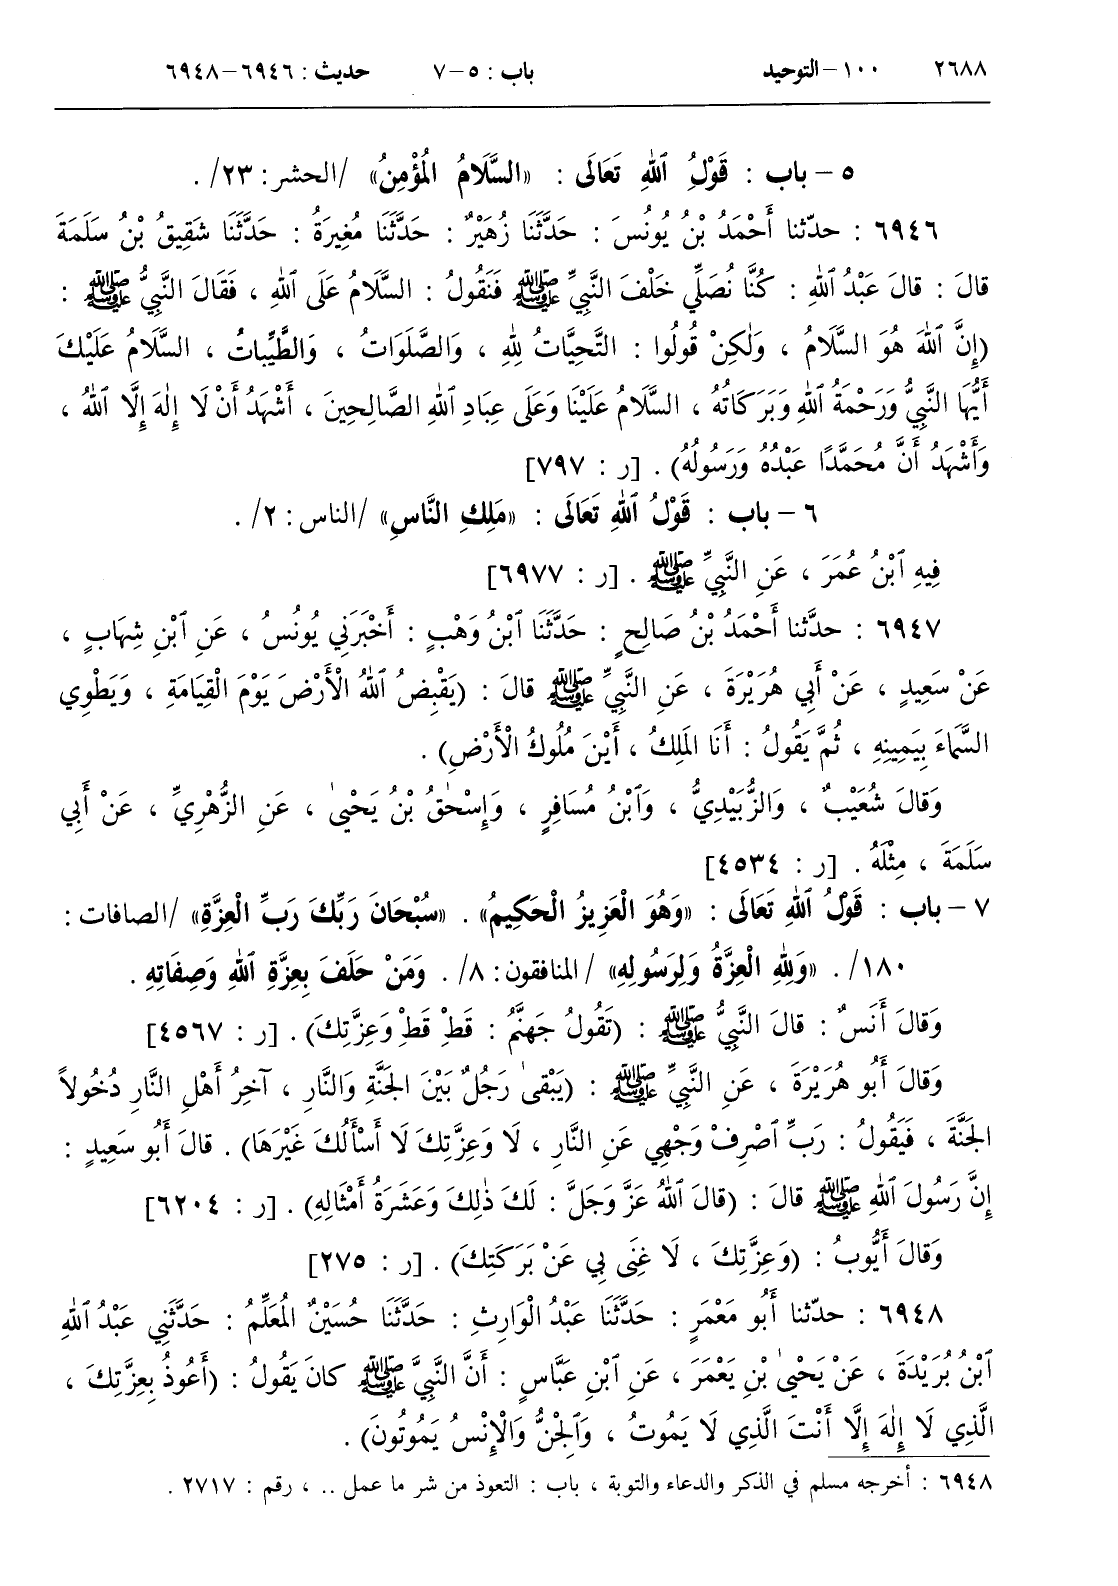 ٢٦٨٨ ١٠٠-التوحيد باب : ٥-٧ حديث : ٦٩٤٦-٦٩٤٨
٥ - باب : قَوْلُ ٱللهِ تَعَالَى : «السَّلَامُ المُؤْمِنُ» /الحشر: ٢٣/ .
٦٩٤٦ : حدّثنا أَحْمَدُ بْنُ يُونُسَ : حَدَّثَنَا زُهَيْرٌ : حَدَّثَنَا مُغِيرَةُ : حَدَّثَنَا شَقِيقُ بْنُ سَلَمَةَ
قالَ : قالَ عَبْدُ ٱللهِ : كُنَّا نُصَلِّي خَلْفَ النَّبِيِّ ﷺ فَنَقُولُ : السَّلَامُ عَلَى ٱللهِ ، فَقَالَ النَّبِيُّ ﷺ :
(إِنَّ ٱللهَ هُوَ السَّلَامُ ، وَلٰكِنْ قُولُوا : التَّحِيَّاتُ لِلهِ ، وَالصَّلَوَاتُ ، وَالطَّيِّباتُ ، السَّلَامُ عَلَيْكَ
أَيُّهَا النَّبِيُّ وَرَحْمَةُ ٱللهِ وَبَرَكَاتُهُ ، السَّلَامُ عَلَيْنَا وَعَلَى عِبَادِ ٱللهِ الصَّالِحِينَ ، أَشْهَدُ أَنْ لَا إِلٰهَ إِلَّا ٱللهُ ،
وَأَشْهَدُ أَنَّ مُحَمَّدًا عَبْدُهُ وَرَسُولُهُ) . [ر : ٧٩٧]
٦ - باب : قَوْلُ ٱللهِ تَعَالَى : «مَلِكِ النَّاسِ» /الناس: ٢/ .
فِيهِ ٱبْنُ عُمَرَ ، عَنِ النَّبِيِّ ﷺ . [ر : ٦٩٧٧]
٦٩٤٧ : حدَّثنا أَحْمَدُ بْنُ صَالِحٍ : حَدَّثَنَا ٱبْنُ وَهْبٍ : أَخْبَرَنِي يُونُسُ ، عَنِ ٱبْنِ شِهَابٍ ،
عَنْ سَعِيدٍ ، عَنْ أَبِي هُرَيْرَةَ ، عَنِ النَّبِيِّ ﷺ قالَ : (يَقْبِضُ ٱللهُ الْأَرْضَ يَوْمَ الْقِيَامَةِ ، وَيَطْوِي
السَّمَاءَ بِيَمِينِهِ ، ثُمَّ يَقُولُ : أَنَا المَلِكُ ، أَيْنَ مُلُوكُ الْأَرْضِ) .
وَقالَ شُعَيْبٌ ، وَالزُّبَيْدِيُّ ، وَٱبْنُ مُسَافِرٍ ، وَإِسْحٰقُ بْنُ يَحْيىٰ ، عَنِ الزُّهْرِيِّ ، عَنْ أَبِي
سَلَمَةَ ، مِثْلَهُ . [ر : ٤٥٣٤]
٧ - باب : قَوْلُ ٱللهِ تَعَالَى : «وَهُوَ الْعَزِيزُ الْحَكِيمُ» . «سُبْحَانَ رَبِّكَ رَبِّ الْعِزَّةِ» /الصافات :
١٨٠/ . «وَلِلهِ الْعِزَّةُ وَلِرَسُولِهِ» /المنافقون: ٨/ . وَمَنْ حَلَفَ بِعِزَّةِ ٱللهِ وَصِفَاتِهِ .
وَقالَ أَنَسٌ : قالَ النَّبِيُّ ﷺ : (تَقُولُ جَهَنَّمُ : قَطْ قَطْ وَعِزَّتِكَ) . [ر : ٤٥٦٧]
وَقالَ أَبُو هُرَيْرَةَ ، عَنِ النَّبِيِّ ﷺ : (يَبْقىٰ رَجُلٌ بَيْنَ الجَنَّةِ وَالنَّارِ ، آخِرُ أَهْلِ النَّارِ دُخُولاً
الجَنَّةَ ، فَيَقُولُ : رَبِّ ٱصْرِفْ وَجْهِي عَنِ النَّارِ ، لَا وَعِزَّتِكَ لَا أَسْأَلُكَ غَيْرَهَا) . قالَ أَبُو سَعِيدٍ :
إِنَّ رَسُولَ ٱللهِ ﷺ قالَ : (قالَ ٱللهُ عَزَّ وَجَلَّ : لَكَ ذٰلِكَ وَعَشَرَةُ أَمْثَالِهِ) . [ر : ٦٢٠٤]
وَقالَ أَيُّوبُ : (وَعِزَّتِكَ ، لَا غِنَى بِي عَنْ بَرَكَتِكَ) . [ر : ٢٧٥]
٦٩٤٨ : حدّثنا أَبُو مَعْمَرٍ : حَدَّثَنَا عَبْدُ الْوَارِثِ : حَدَّثَنَا حُسَيْنٌ المُعَلِّمُ : حَدَّثَنِي عَبْدُ ٱللهِ
ٱبْنُ بُرَيْدَةَ ، عَنْ يَحْيىٰ بْنِ يَعْمَرَ ، عَنِ ٱبْنِ عَبَّاسٍ : أَنَّ النَّبِيَّ ﷺ كانَ يَقُولُ : (أَعُوذُ بِعِزَّتِكَ ،
الَّذِي لَا إِلٰهَ إِلَّا أَنْتَ الَّذِي لَا يَمُوتُ ، وَٱلْجِنُّ وَالْإِنْسُ يَمُوتُونَ) .
٦٩٤٨ : أخرجه مسلم في الذكر والدعاء والتوبة ، باب : التعوذ من شر ما عمل .. ، رقم : ٢٧١٧ .